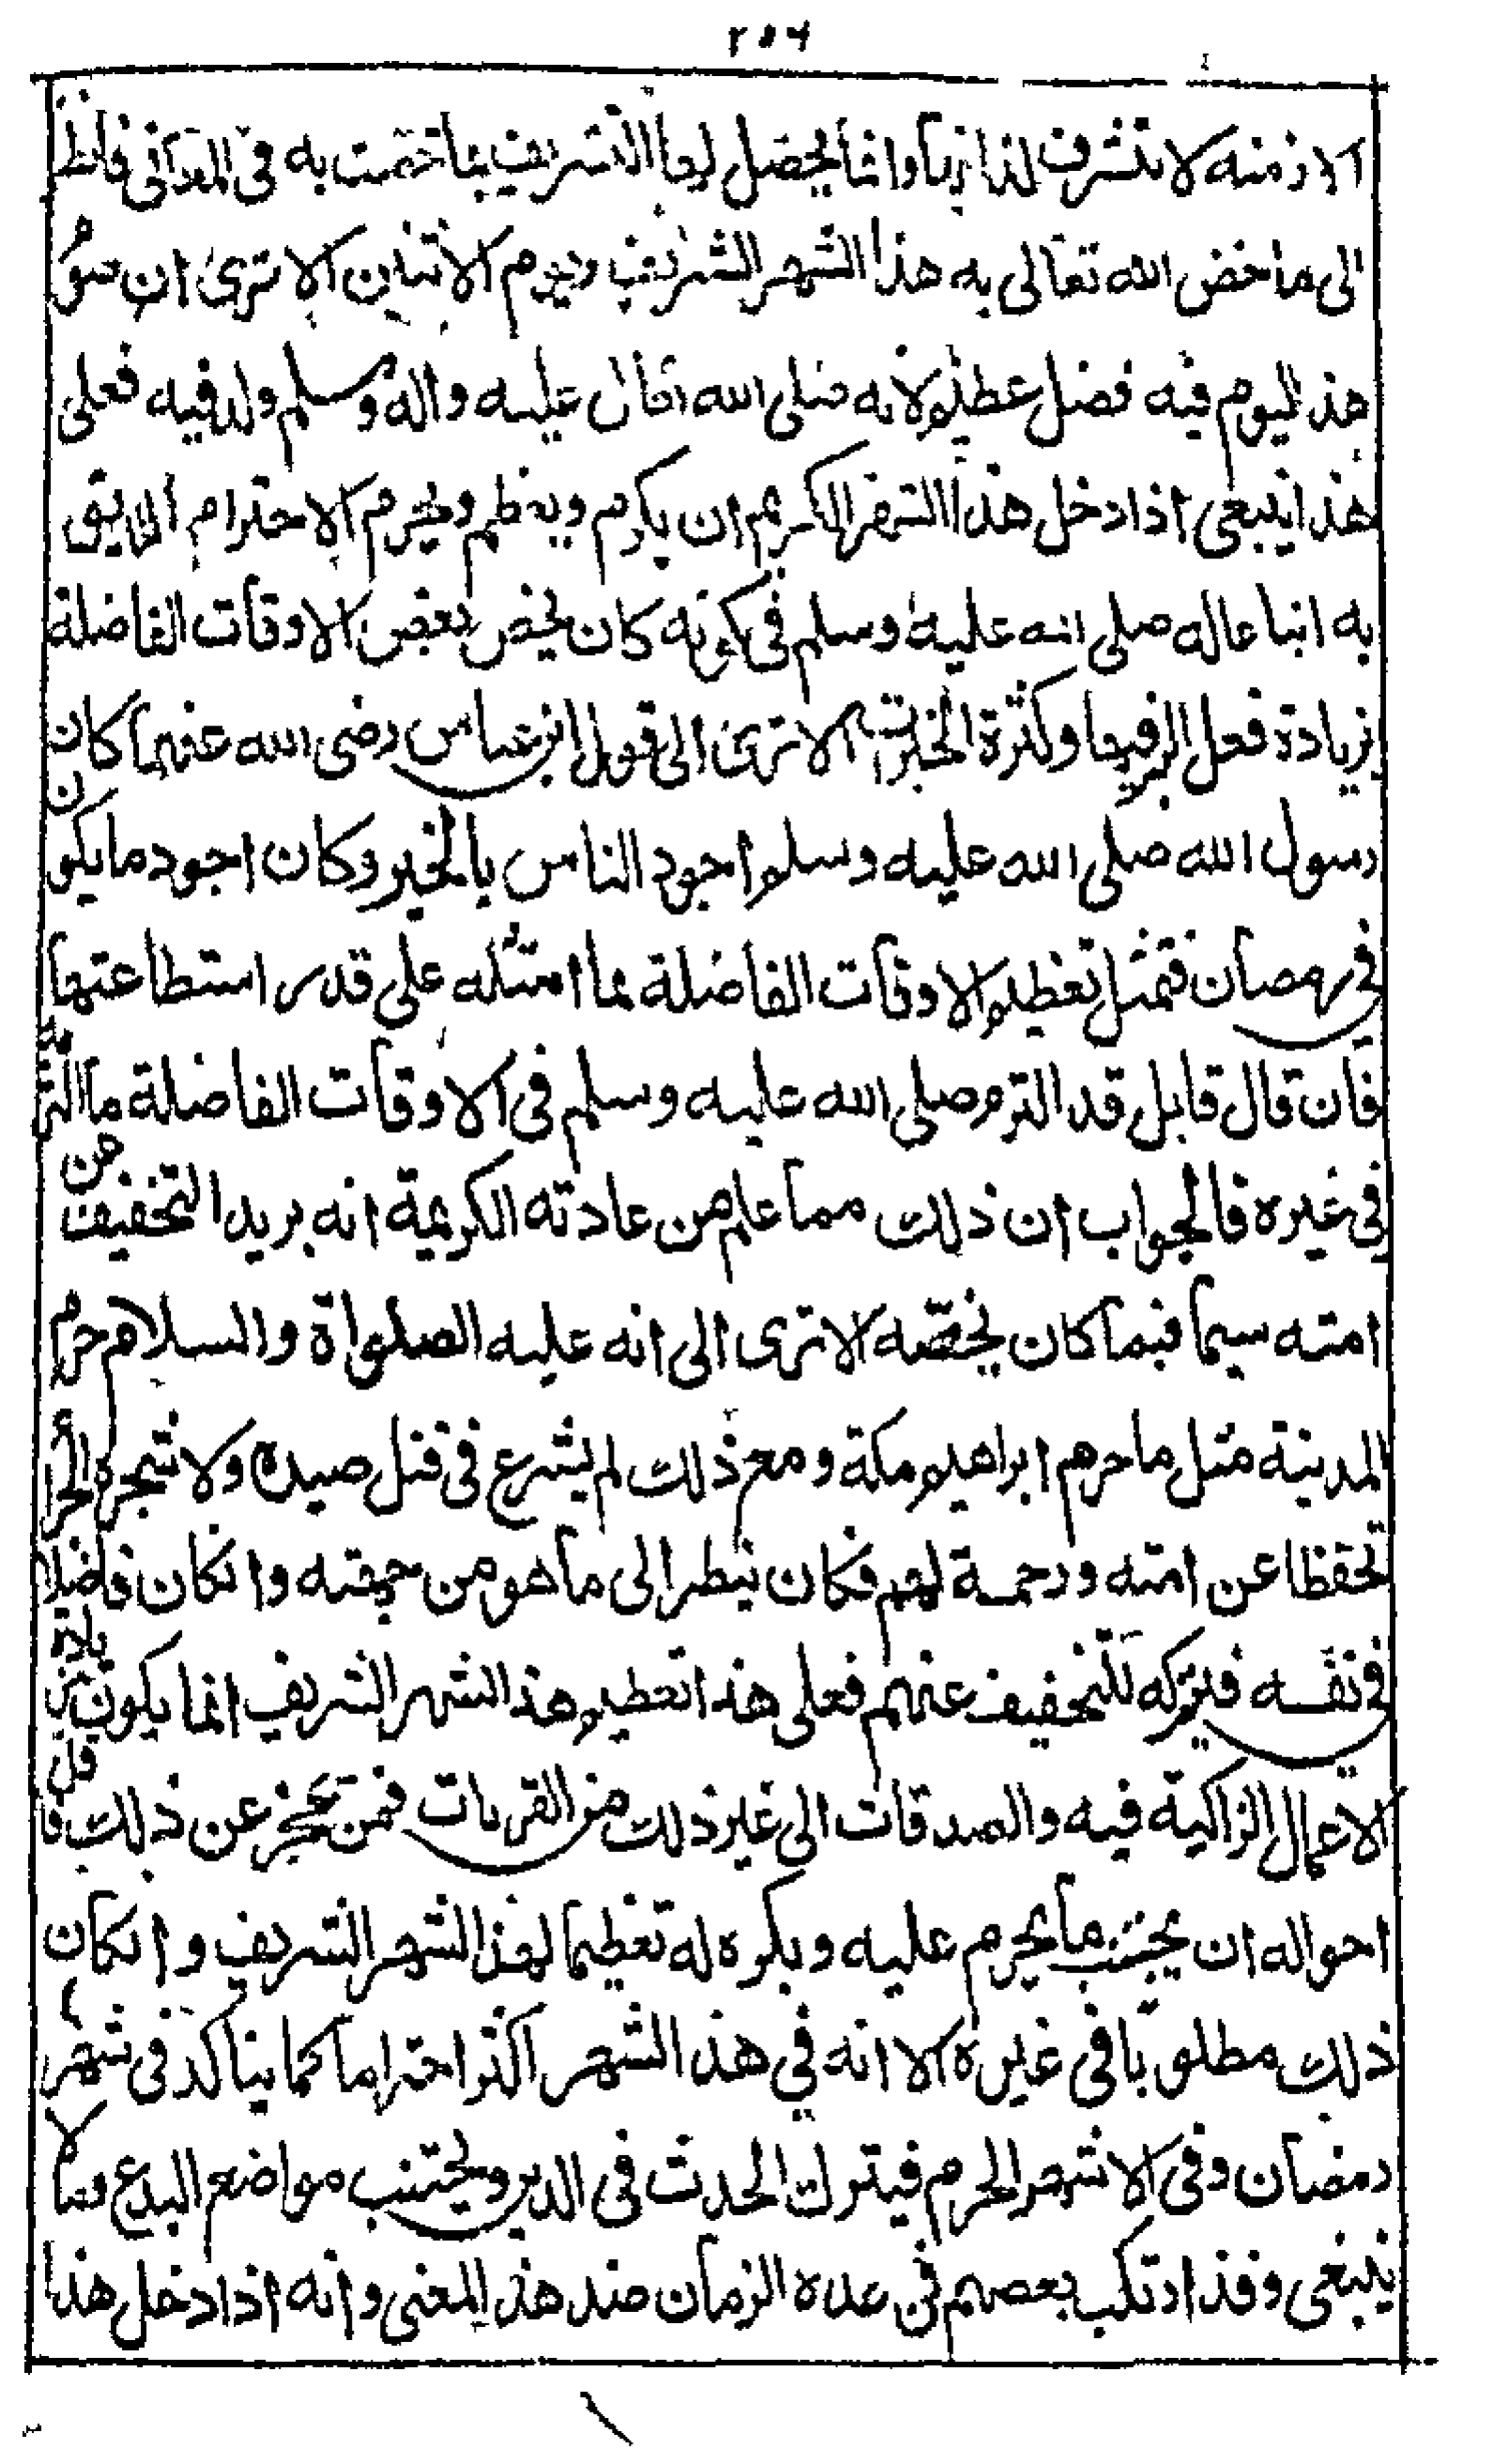 ٢٥٦
الازمنه لا تتشرف لذاتها وانما يحصل لها التشريف بما خصت به فى المعانى فانظر
الى ما خص الله تعالى به هذا الشهر الشريف ويوم الاثنين الا ترى ان صوم
هذ اليوم فيه فضل عظيم لانه صلى الله تعالى عليه واله وسلم ولد فيه فعلى
هذا ينبغى اذا دخل هذا الشهر الكريم ان يكرم ويعظم ويحرم الاحترام اللايق
به اتباعا له صلى الله عليه وسلم فى كونه كان يخص بعض الاوقات الفاضلة
بزيادة فعل البر فيها وكثرة الخيرات الا ترى الى قول ابن عباس رضى الله عنهما كان
رسول الله صلى الله عليه وسلم اجود الناس بالخير وكان اجود ما يكون
فى رمضان فتمثل تعظيم الاوقات الفاضلة بما امتثله على قدر استطاعتها
فان قال قايل قد التزم صلى الله عليه وسلم فى الاوقات الفاضلة ما التزمه
فى غيره فالجواب ان ذلك مما علم من عادته الكريمة انه يريد التخفيف عن
امته سيما فيما كان يخصه الا ترى الى انه عليه الصلواة والسلام حرم
المدينة مثل ما حرم ابراهيم مكة ومع ذلك لم يشرع فى قتل صيده ولا شجره الجزا
تحفظا عن امته ورحمة لهم فكان ينظر الى ما هو من جهته وانكان فاضلا
فى نفسه فيتركه للتخفيف عنهم فعلى هذا تعطيم هذ الشهر الشريف انما يكون بزيادة
الاعمال الزاكية فيه والصدقات الى غير ذلك من القربات فمن عجز عن ذلك فاقل
احواله ان يجتنب ما يحرم عليه ويكره له تعظيما لهذ الشهر الشريف وانكان
ذلك مطلوبا فى غيره الا انه في هذ الشهر اكثر احتراما كما يتاكد فى شهر
رمضان وفى الاشهر الحرم فيترك الحدث فى الدين ويجتنب مواضع البدع وما لا
ينبغى وقد ارتكب بعضهم فى هده الزمان ضد هذ المعنى وانه اذا دخل هذا